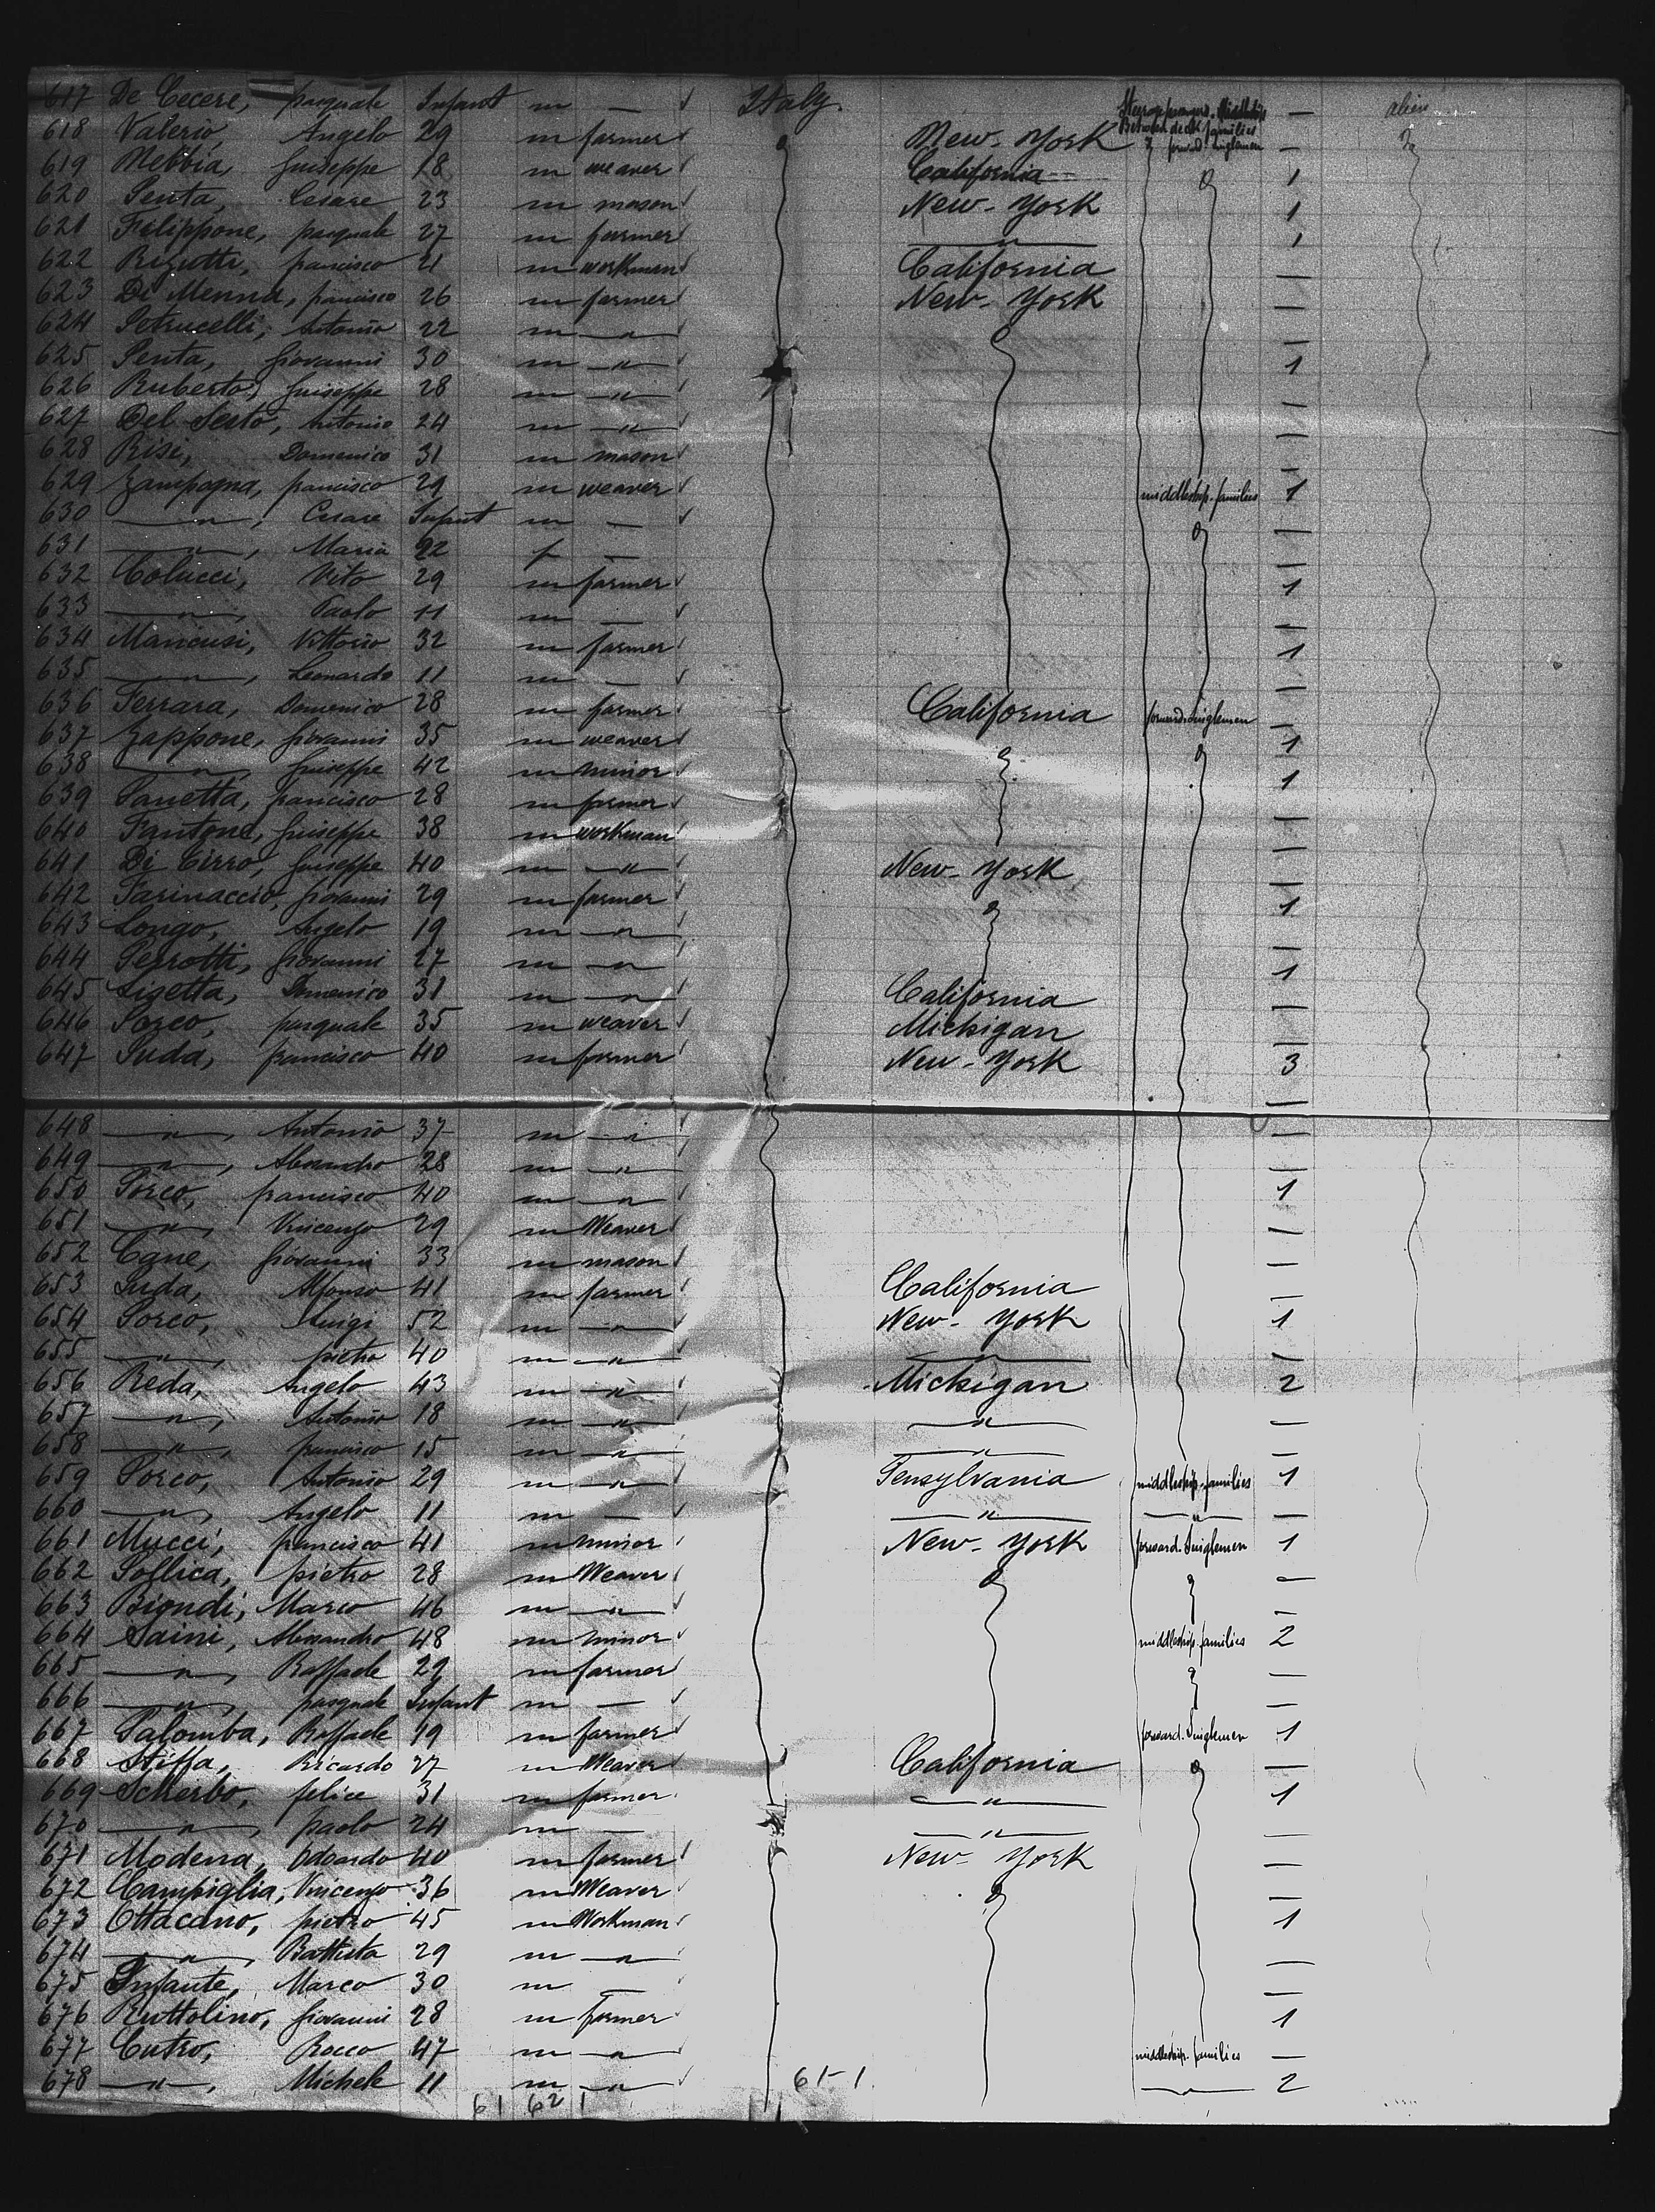 617 De Cecere, pasquale Infant m — ✓ Italy. Steerage passengers. Middleship Between deck families — alien
618 Valerio, Angelo 29 m farmer ✓ New-York forward singlemen —
619 Mebbia, Guiseppe 18 m weaver ✓ California 1
620 Penta, Cesare 23 m mason ✓ New-York 1
621 Filippone, pasquale 27 m farmer ✓ —"— 1
622 Rizutti, francisco 21 m workman ✓ California —
623 Di Menna, francisco 26 m farmer ✓ New-York —
624 Petrucelli, Antonio 22 m —"— ✓ —
625 Penta, Giovanni 30 m —"— ✓ 1
626 Ruberto, Guiseppe 28 m —"— ✓ —
627 Del Sesto, Antonio 24 m —"— ✓ —
628 Risi, Domenico 31 m mason ✓ —
629 Zampogna, francisco 29 m weaver ✓ middleship. families 1
630 —"—, Cesare Infant m — ✓ —
631 —"—, Maria 22 f — —
632 Colucci, Vito 29 m farmer ✓ 1
633 —"—, Paolo 11 m — ✓ —
634 Mancusi, Vittorio 32 m farmer ✓ 1
635 —"—, Leonardo 11 m — ✓ —
636 Ferrara, Domenico 28 m farmer ✓ California forward singlemen —
637 Zappone, Giovanni 35 m weaver ✓ 1
638 —"— Guiseppe 42 m minor ✓ 1
639 Panetta, francisco 28 m farmer ✓ —
640 Fantone, Guiseppe 38 m workman ✓ —
641 Di Cirro, Guiseppe 40 m —"— ✓ New-York —
642 Farinaccio, Giovanni 29 m farmer ✓ 1
643 Longo, Angelo 19 m —"— ✓ —
644 Perrotti, Giovanni 27 m —"— ✓ 1
645 Lisetta, Domenico 31 m —"— ✓ California —
646 Porco, pasquale 35 m weaver ✓ Michigan —
647 Suda, francisco 40 m farmer ✓ New-York 3
648 —"—, Antonio 37 m —"— ✓ —
649 —"—, Alessandro 28 m —"— ✓ —
650 Porco, francisco 40 m —"— ✓ 1
651 —"—, Vincenzo 29 m Weaver ✓ —
652 Cane, Giovanni 33 m mason ✓ —
653 Suda, Alfonso 41 m farmer ✓ California —
654 Porco, Luigi 52 m —"— ✓ New-York 1
655 —"—, pietro 40 m —"— ✓ —"— —
656 Reda, Angelo 43 m —"— ✓ Michigan 2
657 —"—, Antonio 18 m —"— ✓ —"— —
658 —"—, francisco 15 m —"— ✓ —"— —
659 Porco, Antonio 29 m —"— ✓ Pensylvania middleship. families 1
660 —"—, Angelo 11 m — ✓ —"— —"— —
661 Mucci, francisco 41 m minor ✓ New-York forward. Singlemen 1
662 Soflica, pietro 28 m Weaver ✓ —
663 Biondi, Marco 46 m —"— ✓ —
664 Saini, Alessandro 48 m minor ✓ middleship. families 2
665 —"—, Raffaele 29 m farmer ✓ —
666 —"—, pasquale Infant m — ✓ —
667 Palomba, Raffaele 19 m farmer ✓ forward. Singlemen 1
668 Stiffa, Ricardo 27 m Weaver ✓ California —
669 Scherbo, felice 31 m farmer ✓ —"— 1
670 —"—, paolo 24 m — —"— —
671 Modena, Odoardo 40 m farmer ✓ New-York —
672 Campiglia, Vincenzo 36 m Weaver ✓ —
673 Ottacano, pietro 45 m Workman ✓ 1
674 —"—, Battista 29 m —"— —
675 Infante, Marco 30 m — —
676 Ruttolino, Giovanni 28 m farmer ✓ 1
677 Cutro, Rocco 47 m —"— ✓ middleship. families —
678 —"—, Michele 11 m —"— ✓ —"— 2
61 62 1 61-1